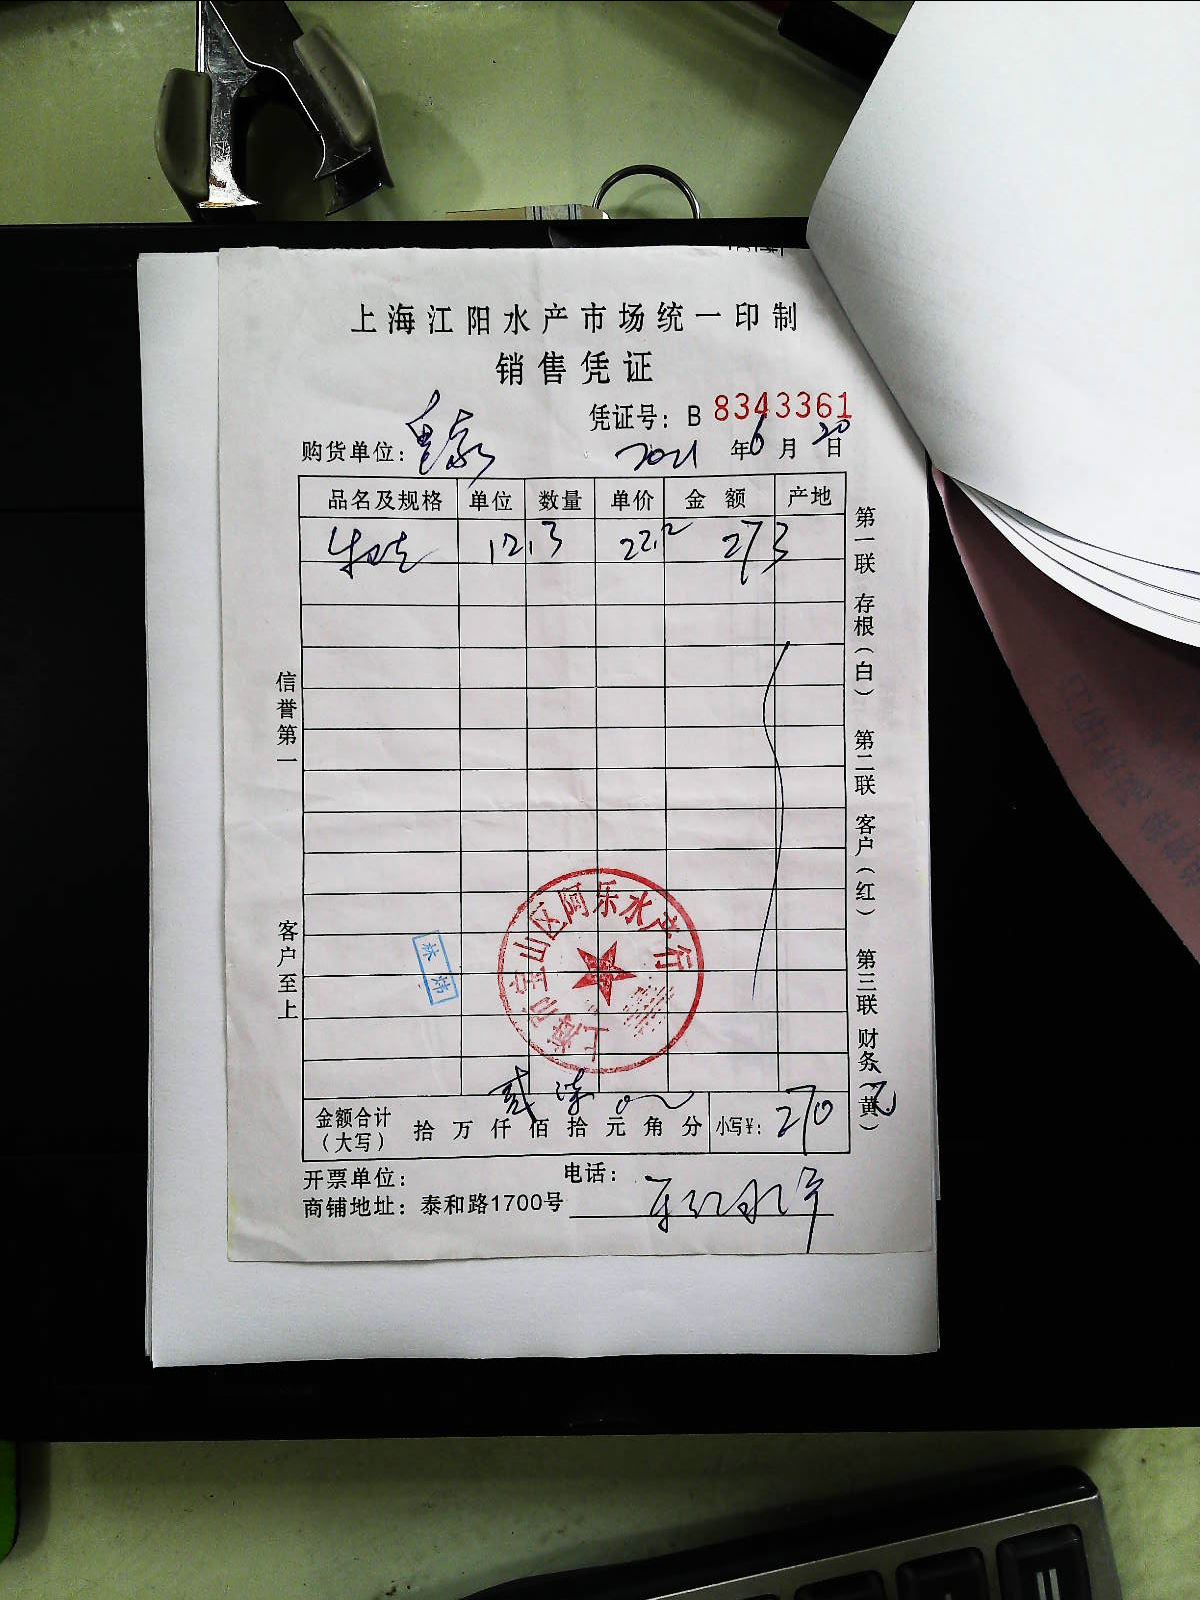 上海江阳水产市场统一印制
销售凭证
凭证号：B 8343361
购货单位： 2021 年 6 月 20 日
品名及规格 单位 数量 单价 金额 产地
牛蛙 12.3 22.2 273
信誉第一
客户至上
第一联 存根（白） 第二联 客户（红） 第三联 财务（黄）
上海市宝山区阿乐水产行
金额合计（大写） 贰 柒 拾 万 仟 佰 拾 元 角 分 小写¥： 270 元
开票单位： 电话：
商铺地址：泰和路1700号